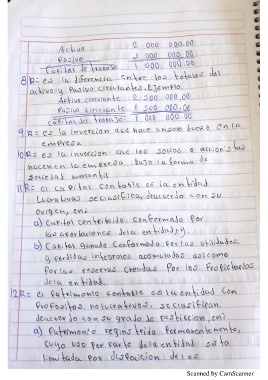 Activo 2 000 000.00
Pasivo
Capital de trabajo 1 000 000.00
8 R= es la diferencia entre los totales del
activo y Pasivo circulantes. Ejemplo:
Activo circulante 2 500 000.00
Pasivo circulante 1 500 000.00
capital del trabajo 1 000 000.00
9 R= es la invercion que hace un solo dueño en la
empresa
10 R= es la invercion que los socios o accionistas
hacen en la empresa bajo la forma de
sociedad
11 R= el capital contable es la entidad
Lucrativas se clasifica, deacuerdo con su
origen, en:
a) Capital contribuido. Conformado Por
las aportaciones dela entidad, y
b) Capital ganado Conformado Por las utilidades
y perdidas integrales acomuladas asicomo
Por las reservas creadas Por los Propietarios
de la entidad.
12 R= el Patrimonio contable es la entidad con
Propositos no lucrativos, se clasifican
deacuerdo con su grado de restriccion, en:
a) Patrimonio restringido Permanentemente,
cuyo uso Por Parte dela entidad esta
limitada Por disposicion de los
Scanned by CamScanner